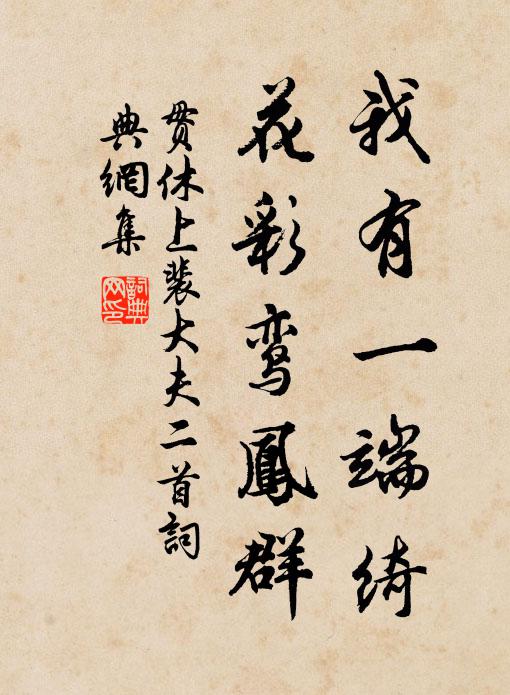 我有一端綺
花彩鸾鳳群
贯休上裴大夫二首詞
典網集
詞典
网印